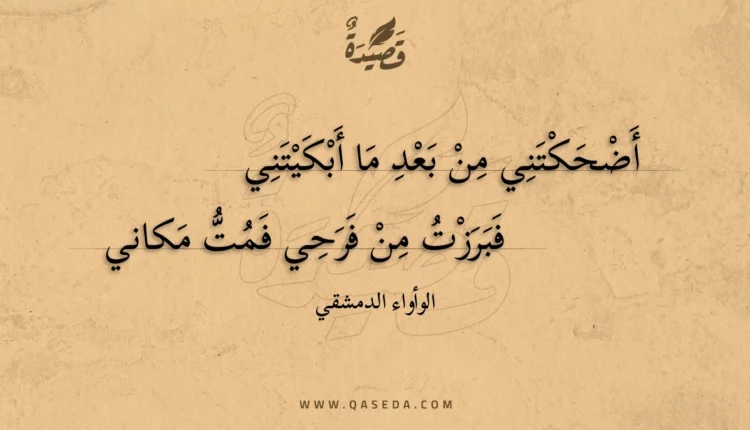 قَصِيْدَةٌ
أَضْحَكْتَنِي مِنْ بَعْدِ مَا أَبْكَيْتَنِي
فَبَرَزْتُ مِنْ فَرَحِي فَمُتُّ مَكاني
الوأواء الدمشقي
WWW.QASEDA.COM